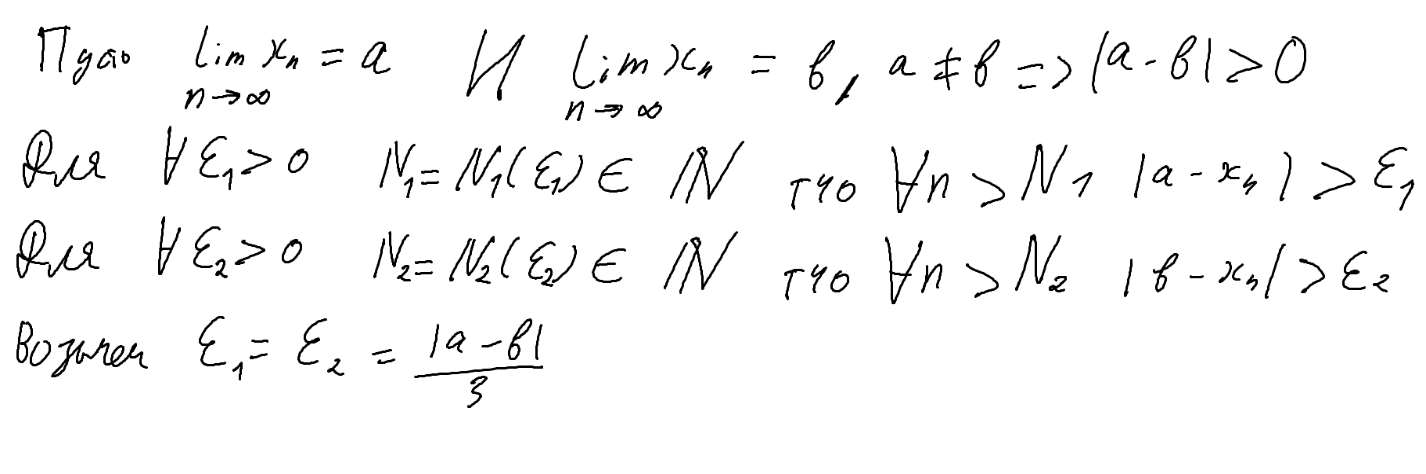 Пусть lim xₙ = a И lim xₙ = b, a ≠ b => |a - b| > 0
n→∞ n→∞
Для ∀ ε₁ > 0 N₁ = N₁(ε₁) ∈ ℕ тчо ∀n > N₁ |a - xₙ| > ε₁
Для ∀ ε₂ > 0 N₂ = N₂(ε₂) ∈ ℕ тчо ∀n > N₂ |b - xₙ| > ε₂
Возьмем ε₁ = ε₂ = |a - b| / 3